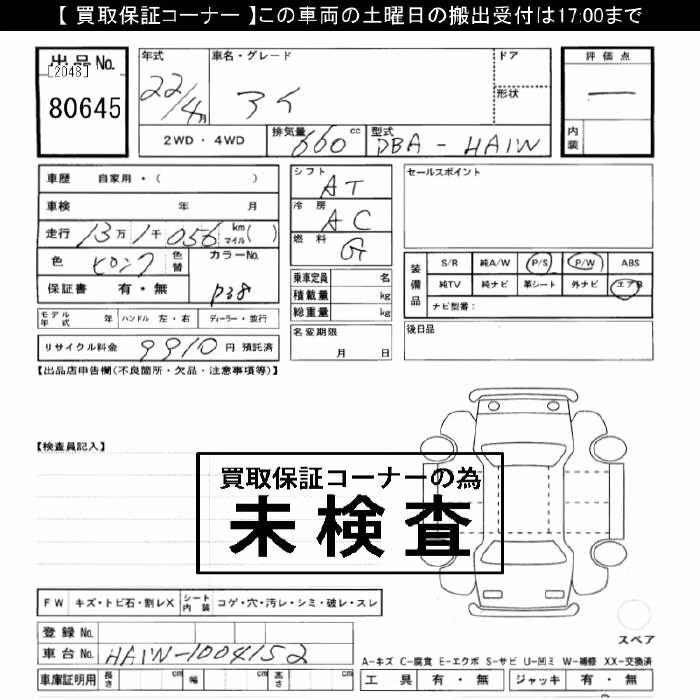 【 買取保証コーナー 】この車両の土曜日の搬出受付は17:00まで
出品No.
[2048]
80645
年式
22/4月
車名・グレード
アイ
ドア
形状
2WD・4WD
排気量 660 cc
型式 DBA-HA1W
評価点
―
内装
車歴 自家用・( )
車検 年 月
走行 13万1千056 km マイル( )
色 ピンク 色替
カラーNo.
P38
保証書 有・無
シフト AT
冷房 AC
燃料 G
セールスポイント
乗車定員 名
積載量 kg
総重量 kg
装備品
S/R 純A/W P/S P/W ABS
純TV 純ナビ 革シート 外ナビ エアB
ナビ型番:
モデル年式 年 ハンドル 左・右 ディーラー・並行
名変期限
月 日
後日品
リサイクル料金 9910 円 預託済
【出品店申告欄(不良箇所・欠品・注意事項等)】
【検査員記入】
買取保証コーナーの為
未検査
FW キズ・トビ石・割レX シート内装 コゲ・穴・汚レ・シミ・破レ・スレ
登録No.
車台No. HA1W-1004152
車庫証明用 長さ cm 幅 cm 高さ cm
スペア
A-キズ C-腐食 E-エクボ S-サビ U-凹ミ W-補修 XX-交換済
工具 有・無 ジャッキ 有・無